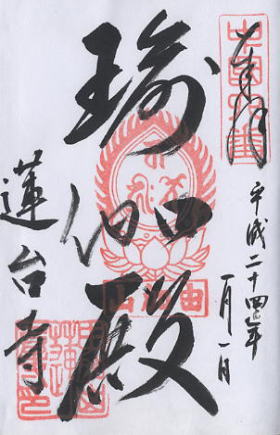 奉拝
平成二十四年
一月一日
瑜伽殿
蓮台寺